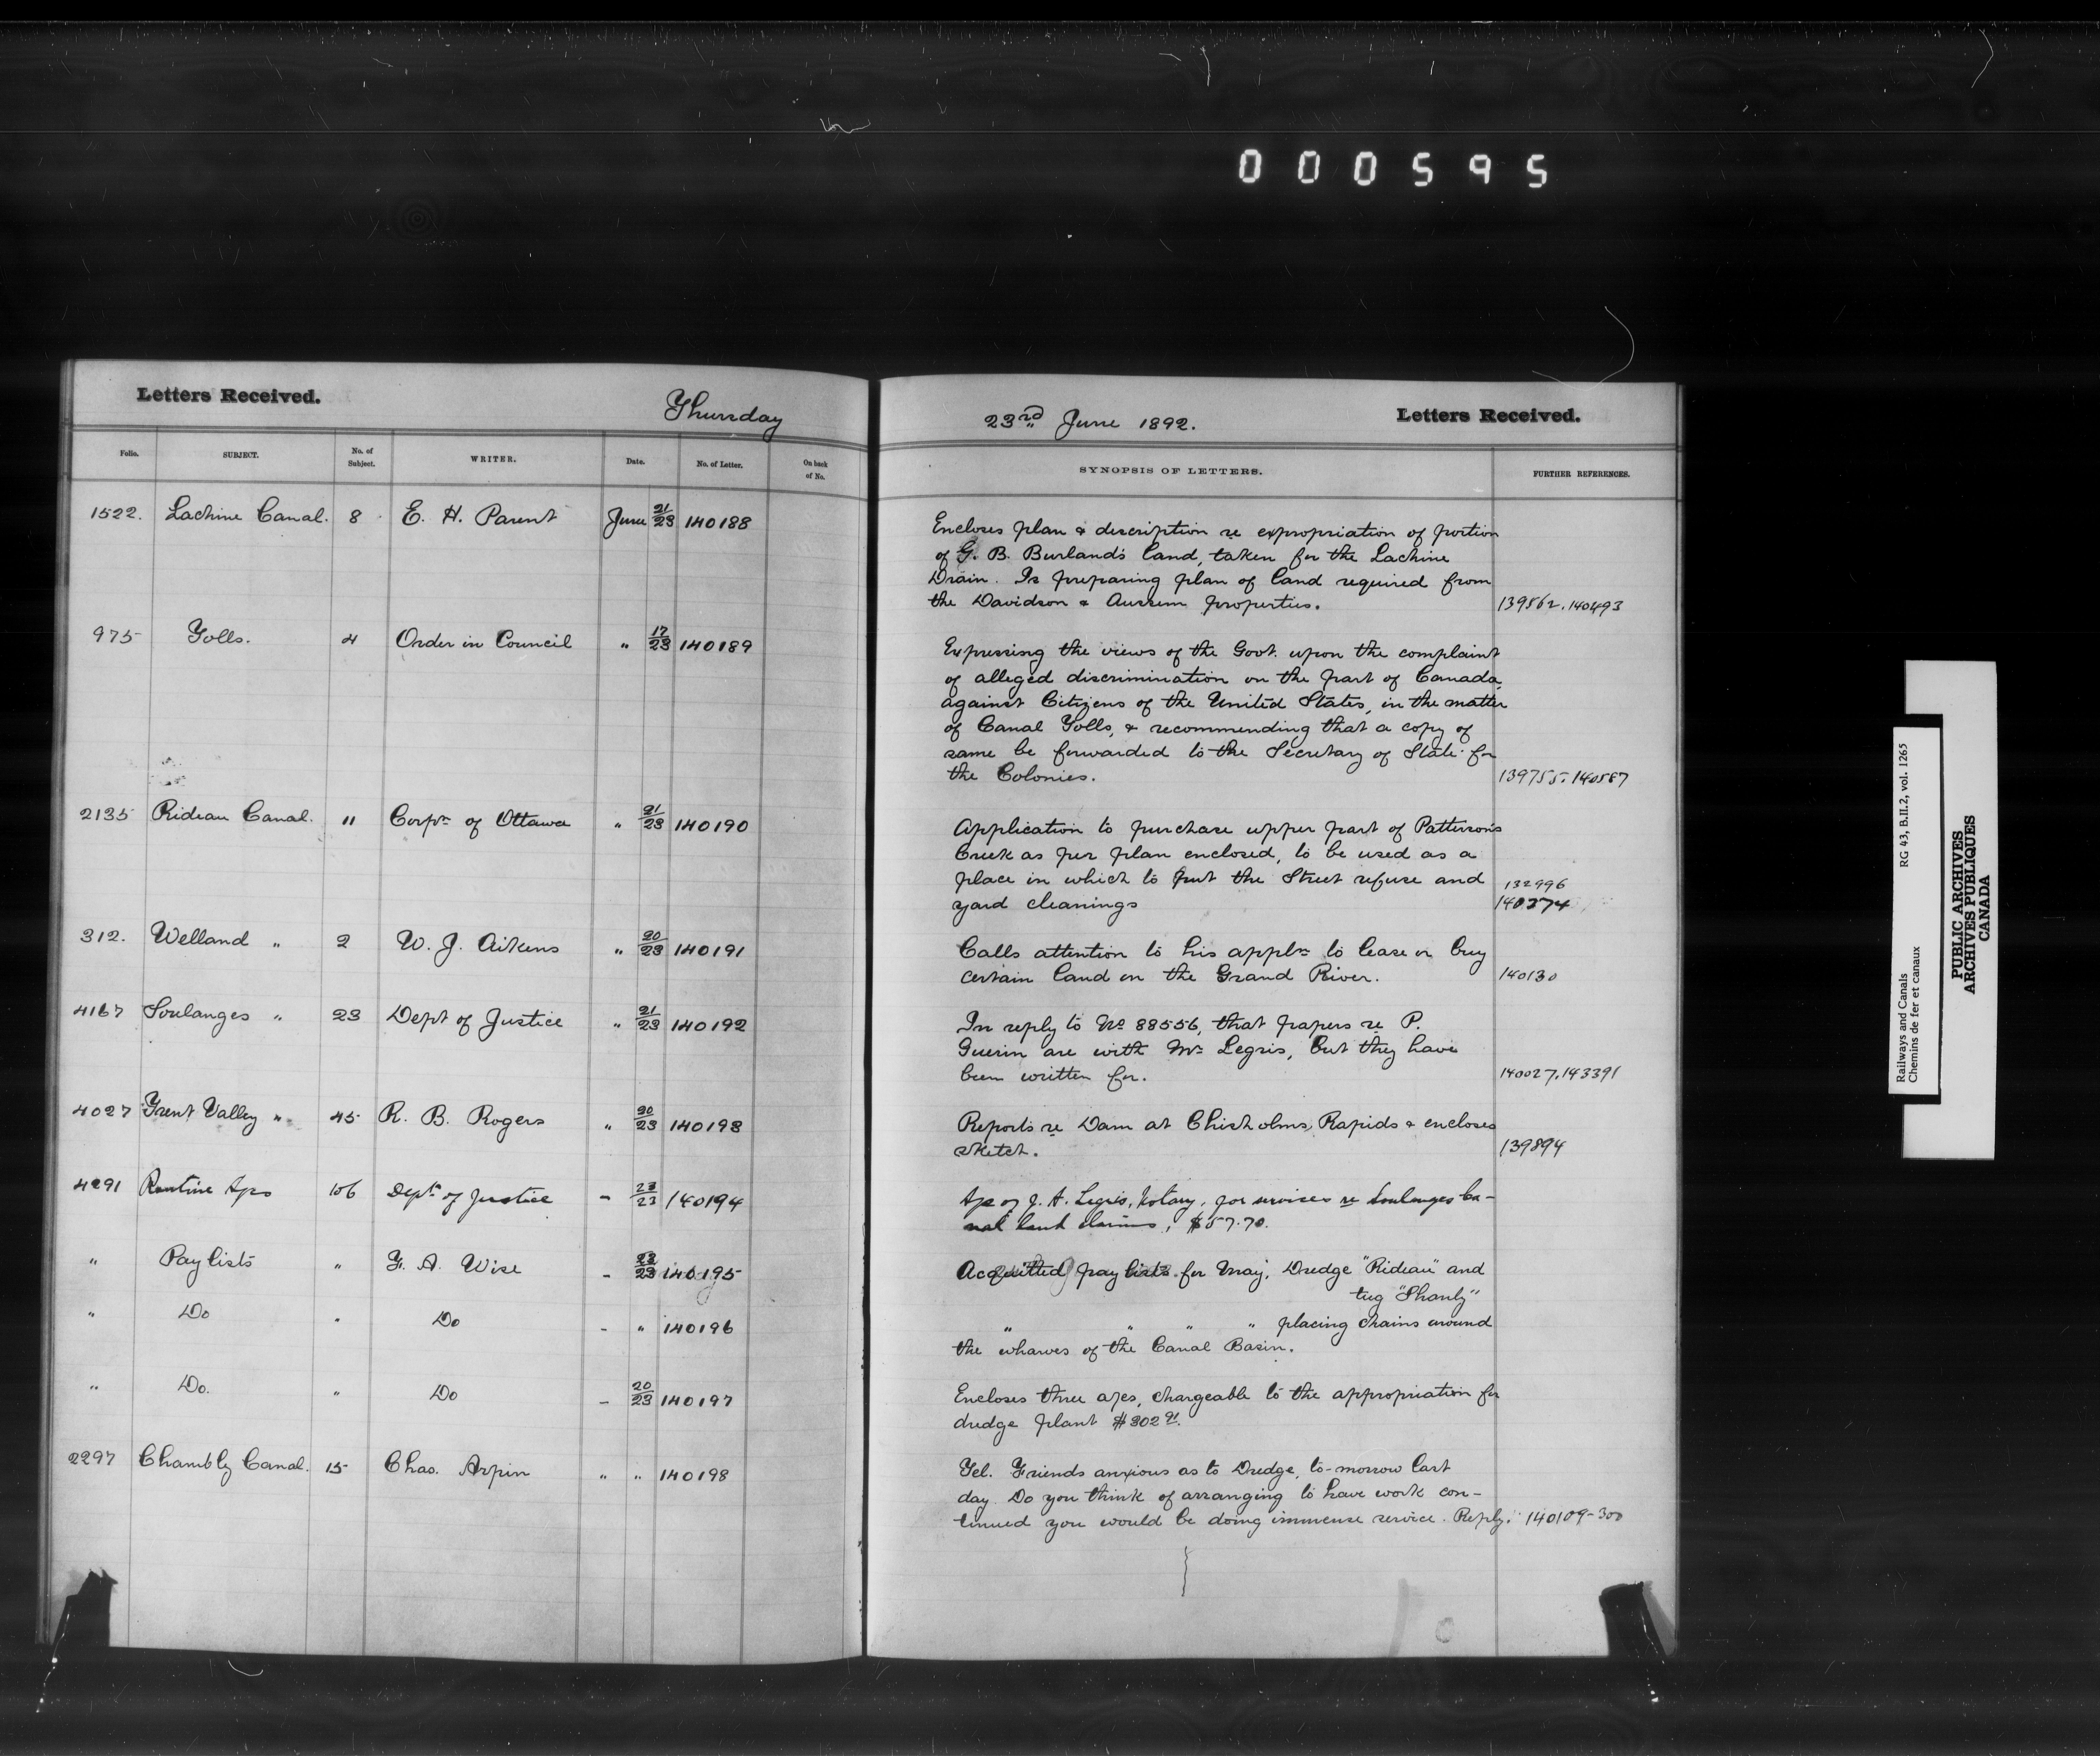 000595
Letters Received. Thursday
Folio. SUBJECT. No. of Subject. WRITER. Date. No. of Letter. On back of No.
1522. Lachine Canal. 8 E. H. Parent June 21/23 140188
975 Tolls. 4 Order in Council " 17/23 140189
2135 Rideau Canal. 11 Corpn of Ottawa " 21/23 140190
312. Welland " 2 W. J. Aikens " 20/23 140191
4167 Soulanges " 23 Dept of Justice " 21/23 140192
4027 Trent Valley " 45 R. B. Rogers " 20/23 140193
4291 Routine Aps 106 Dept of Justice - 23/23 140194
" Pay lists " F. A. Wise - 22/23 140195
" Do " Do - " 140196
" Do. " Do - 20/23 140197
2297 Chambly Canal. 15 Chas. Arpin " " 140198
23rd June 1892. Letters Received.
SYNOPSIS OF LETTERS. FURTHER REFERENCES.
Encloses plan & description re expropriation of portion
of G. B. Burland's land, taken for the Lachine
Drain. Is preparing plan of land required from
the Davidson & Aussem properties. 139562. 140493
Expressing the views of the Govt. upon the complaint
of alleged discrimination on the part of Canada,
against Citizens of the United States, in the matter
of Canal Tolls, & recommending that a copy of
same be forwarded to the Secretary of State for
the Colonies. 139755. 140587
Application to purchase upper part of Patterson's
Creek as per plan enclosed, to be used as a
place in which to put the Street refuse and 132996
yard cleanings 140274
Calls attention to his appln to lease or buy
certain land on the Grand River. 140130
In reply to No 88556, that papers re P.
Guerin are with Mr Legris, but they have
been written for. 140027. 143391
Reports re Dam at Chisholms Rapids & encloses
sketch. 139894
Ap of J. A. Legris, Notary, for services re Soulanges Ca-
nal land claims, $57.70.
Acquitted pay lists for May, Dredge "Rideau" and
tug "Shanly"
" " " " placing chains around
the wharves of the Canal Basin.
Encloses three a/cs, chargeable to the appropriation for
dredge plant $302.91.
Tel. Friends anxious as to Dredge, to-morrow last
day. Do you think of arranging to have work con-
tinued you would be doing immense service. Reply. 140109-300
Railways and Canals RG 43, B.II.2, vol. 1265
Chemins de fer et canaux
PUBLIC ARCHIVES
ARCHIVES PUBLIQUES
CANADA